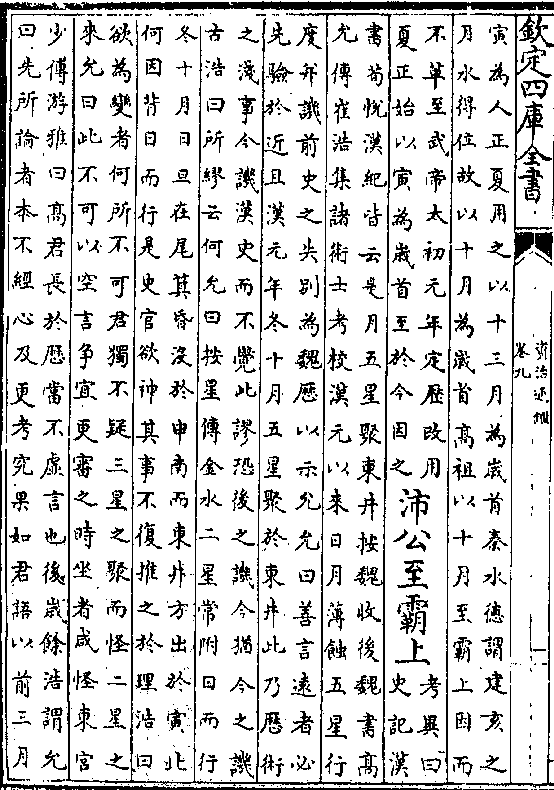 欽定四庫全書
資治通鑑
卷九
寅為人正夏用之以十三月為歲首秦水德謂建亥之
月水得位故以十月為歲首高祖以十月至霸上因而
不革至武帝太初元年定歷改用
夏正始以寅為歲首至於今因之
沛公至霸上
考異曰
史記漢
書荀悅漢紀皆云是月五星聚東井按魏收後魏書高
允傳崔浩集諸術士考校漢元以來日月薄蝕五星行
度并譏前史之失別為魏歷以示允允曰善言遠者必
先驗於近且漢元年冬十月五星聚於東井此乃歷術
之淺事今譏漢史而不覺此謬恐後之譏今猶今之譏
古浩曰所繆云何允曰按星傳金水二星常附日而行
冬十月日旦在尾箕昏沒於申南而東井方出於寅北
何因背日而行是史官欲神其事不復推之於理浩曰
欲為變者何所不可君獨不疑三星之聚而怪二星之
來允曰此不可以空言爭宜更審之時坐者咸怪東宮
少傅游雅曰髙君長於歷當不虛言也後歲餘浩謂允
曰先所論者本不經心及更考究果如君語以前三月